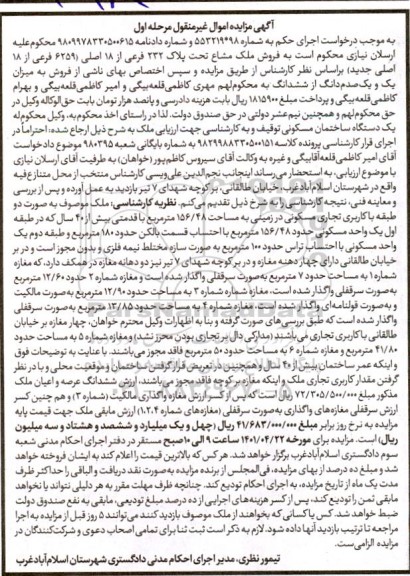 آگهی مزایده اموال غیرمنقول مرحله اول
به موجب درخواست اجرای حکم به شماره ۵۵۳۲۱۹*۹۸ و شماره دادنامه ۹۸۰۹۹۷۸۳۳۰۵۰۰۶۱۵ محکوم‌علیه
ارسلان نیازی محکوم است به فروش ملک مشاع تحت پلاک ۲۳۲ فرعی از ۱۸ اصلی (۶۲۵۹ فرعی از ۱۸
اصلی جدید) براساس نظر کارشناس از طریق مزایده و سپس اختصاص بهای ناشی از فروش به میزان
یک و یک‌صدم‌دانگ از ششدانگ به محکوم‌لهم مهری کاظمی‌قلعه‌بیگی و امیر کاظمی‌قلعه‌بیگی و بهرام
کاظمی‌قلعه‌بیگی و پرداخت مبلغ ۱۸۱۵۹۰۰ ریال بابت هزینه دادرسی و پانصد هزار تومان بابت حق‌الوکاله وکیل در
حق محکوم‌لهم و همچنین نیم‌عشر دولتی در حق صندوق دولت. لذا در راستای اخذ محکوم‌به، وکیل محکوم‌له
یک دستگاه ساختمان مسکونی توقیف و به کارشناسی جهت ارزیابی ملک به شرح ذیل ارجاع شده: احتراماً در
اجرای قرار کارشناسی پرونده کلاسه ۹۸۲۹۹۸۸۳۳۰۵۰۰۱۵۱ به شماره بایگانی شعبه ۹۸۰۳۹۵ موضوع دادخواست
آقای امیر کاظمی قلعه‌آقابیگی و غیره به وکالت آقای سیروس کاظم‌پور (خواهان) به طرفیت آقای ارسلان نیازی
با موضوع ارزیابی، به استحضار می‌رساند اینجانب نجم‌الدین علی‌ویسی کارشناس منتخب از محل متنازع‌فیه
واقع در شهرستان اسلام‌آبادغرب، خیابان طالقانی، بر کوچه شهدای ۷ تیر بازدید به عمل آورده و پس از بررسی
و معاینه فنی، نتیجه کارشناسی به شرح ذیل تقدیم می‌گردد. نظریه کارشناسی: ملک موصوف به صورت دو
طبقه با کاربری تجاری مسکونی در زمینی به مساحت ۱۵۶/۴۸ مترمربع با قدمتی بیش از ۴۰ سال که در طبقه
اول یک واحد مسکونی حدود ۱۵۶/۴۸ مترمربع با احتساب قسمت بالکن حدود ۱۸۰ مترمربع و طبقه دوم یک
واحد مسکونی با احتساب تراس حدود ۱۰۰ مترمربع به صورت سازه مختلط نیمه فلزی و بدون مجوز است و در بر
خیابان طالقانی دارای چهار دهنه مغازه و در بر کوچه شهدای ۷ تیر نیز دو دهانه مغازه در همکف دارد، که مغازه
شماره ۱ به مساحت حدود ۷ مترمربع به‌صورت سرقفلی واگذار شده است و مغازه شماره ۲ حدود ۱۲/۶۰ مترمربع
به صورت سرقفلی واگذار شده است، مغازه شماره شماره ۳ به مساحت حدود ۱۲/۹۰ مترمربع به صورت مالکیت
و به صورت قولنامه‌ای واگذار شده است، مغازه شماره ۴ به مساحت حدود ۱۳/۸۵ مترمربع به صورت سرقفلی
واگذار شده است که طبق بررسی‌های صورت گرفته و بنا به اظهارات وکیل محترم خواهان، چهار مغازه بر خیابان
طالقانی با کاربری تجاری می‌باشند (مدارکی دال بر تجاری بودن محرز نشد) و مغازه شماره ۵ به مساحت حدود
۴۱/۸۰ مترمربع و مغازه شماره ۶ به مساحت حدود ۵۰ مترمربع فاقد مجوز می‌باشند. با عنایت به توضیحات فوق
و اینکه عمر ساختمان بیش از ۴۰ سال و همچنین در تعریض قرار گرفتن ساختمان و موقعیت محلی و با در نظر
گرفتن مقدار کاربری تجاری ملک و اینکه مغازه بر کوچه فاقد مجوز می‌باشند، ارزش ششدانگ عرصه و اعیان ملک
مذکور مبلغ ۷۲/۳۰۵/۵۰۰/۰۰۰ ریال است که پس از کسر ارزش مغازه واگذاری مالکیت (شماره ۳) و هم چنین کسر
ارزش سرقفلی مغازه‌های واگذاری به‌صورت سرقفلی (مغازه‌های شماره ۱،۲،۴) ارزش مابقی ملک جهت قیمت پایه
مزایده به نرخ روز برابر مبلغ ۴۱/۶۸۳/۰۰۰/۰۰۰ ریال (چهل و یک میلیارد و ششصد و هشتاد و سه میلیون
ریال) است. مزایده برای مورخه ۱۴۰۱/۰۴/۲۲ ساعت ۹ الی ۱۰ صبح مستقر در دفتر اجرای احکام مدنی شعبه
سوم دادگستری اسلام‌آبادغرب برگزار خواهد شد. هر کس که بالاترین قیمت را اعلام کند به ایشان فروخته خواهد
شد و مبلغ ده درصد از بهای مزایده، فی‌المجلس از برنده مزایده به‌صورت نقد دریافت و الباقی را حداکثر ظرف
مدت یک ماه از تاریخ مزایده، به اجرای احکام تودیع کند. چنانچه ظرف مهلت مقرر به هر دلیلی نتواند یا نخواهد
مابقی ثمن را تودیع کند، پس از کسر هزینه‌های اجرایی از ده درصد مبلغ تودیعی، مابقی به نفع صندوق دولت
ضبط خواهد شد. کس یا کسانی که بخواهند از ملک موصوف بازدید کنند می‌توانند ۵ روز قبل از مزایده به اجرا
مراجعه تا ترتیب بازدید آنها داده شود. لازم به ذکر است ثبت ثنا برای تمامی اصحاب دعوی و شرکت‌کنندگان در
مزایده الزامی‌ست.
تیمور نظری، مدیر اجرای احکام مدنی دادگستری شهرستان اسلام‌آبادغرب